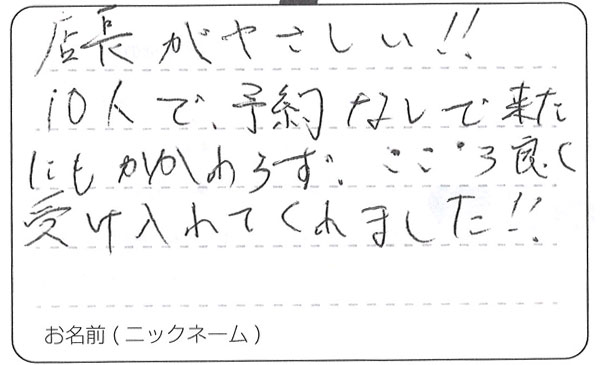 店長がやさしい!!
10人で、予約なしで来た
にもかかわらず、こころ良く
受け入れてくれました!!
お名前(ニックネーム)